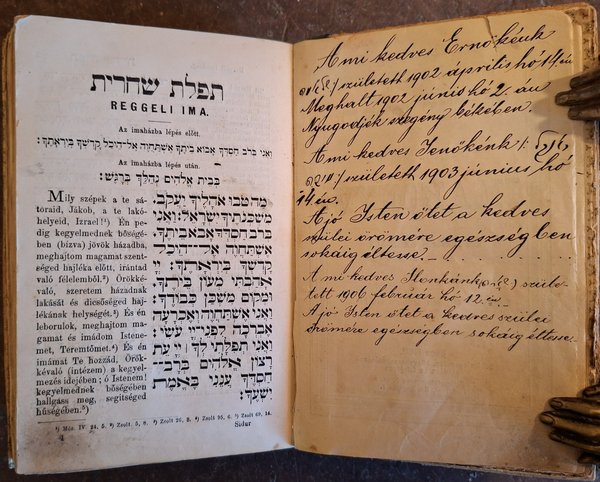 תפלת שחרית
REGGELI IMA.
Az imaházba lépés előtt.
וַאֲנִי בְּרֹב חַסְדְּךָ אָבוֹא בֵיתֶךָ אֶשְׁתַּחֲוֶה אֶל־הֵיכַל קָדְשְׁךָ בְּיִרְאָתֶךָ:
Az imaházba lépés után.
בְּבֵית אֱלֹהִים נְהַלֵּךְ בְּרָגֶשׁ:
Mily szépek a te sá-
toraid, Jákob, a te lakó-
helyeid, Izrael!¹) Én pe-
dig kegyelmednek bőségében
(bizva) jövök házadba,
meghajtom magamat szent-
séged hajléka előtt, irántad
való félelemből.²) Örökké-
való, szeretem házadnak
lakását és dicsőséged haj-
lékának helységét.³) És én
leborulok, meghajtom ma-
gamat és imádom Istene-
met, Teremtőmet.⁴) És én
imámat Te hozzád, Örök-
kévaló (intézem) a kegyelme-
zés idejében; ó Istenem!
kegyelmednek bőségében
hallgass meg, segitséged
hűségében.⁵)
מַה־טֹּבוּ אֹהָלֶיךָ יַעֲקֹב,
מִשְׁכְּנֹתֶיךָ יִשְׂרָאֵל: וַאֲנִי
בְּרֹב חַסְדְּךָ אָבוֹא בֵיתֶךָ
אֶשְׁתַּחֲוֶה אֶל־הֵיכַל
קָדְשְׁךָ בְּיִרְאָתֶךָ: יְיָ
אָהַבְתִּי מְעוֹן בֵּיתֶךָ
וּמְקוֹם מִשְׁכַּן כְּבוֹדֶךָ:
וַאֲנִי אֶשְׁתַּחֲוֶה וְאֶכְרָעָה
אֶבְרְכָה לִפְנֵי־יְיָ עֹשִׂי:
וַאֲנִי תְפִלָּתִי לְךָ | יְיָ עֵת
רָצוֹן אֱלֹהִים בְּרָב־
חַסְדֶּךָ עֲנֵנִי בֶּאֱמֶת
יִשְׁעֶךָ:
¹) Móz. IV. 24, 5. ²) Zsolt. 5, 8. ³) Zsolt 26, 8. ⁴) Zsolt 95, 6. ⁵) Zsolt 69, 14.
4 Sidur
A mi kedves Ernőkénk
született 1902 április hó 14.én
Meghalt 1902 június hó 2.án
Nyugodjék szegény békében.
A mi kedves Jenőkénk
született 1903 június hó
14.én.
A jó Isten őtet a kedves
szülei örömére egészségben
sokáig éltesse.
A mi kedves Ilonkánk szüle-
tett 1906 február hó 12.én
A jó Isten őtet a kedves szülei
örömére egészségben sokáig éltesse.